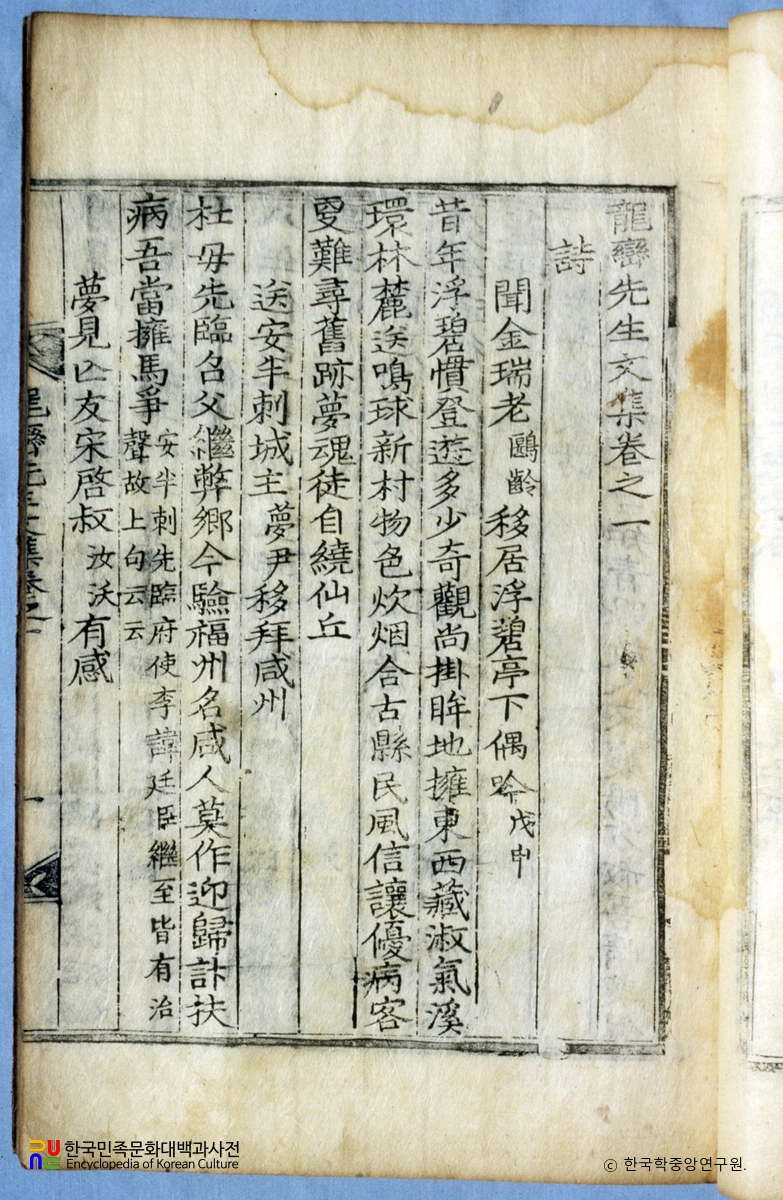 龍巒先生文集卷之一
詩
聞金瑞老鷗齡移居浮碧亭下偶吟戊申
昔年浮碧慣登遊多少奇觀尚掛眸地擁東西藏淑氣溪
環林麓送鳴球新村物色炊烟合古縣民風信讓優病客
更難尋舊跡夢魂徒自繞仙丘
送安半刺城主夢尹移拜咸州
杜母先臨召父繼弊鄉今驗福州名咸人莫作迎歸計扶
病吾當擁馬爭
安半刺先臨府使李諱廷臣繼至皆有治
聲故上句云云
夢見亡友宋啓叔汝沃有感
龍巒先生文集卷之一
一
한국민족문화대백과사전
Encyclopedia of Korean Culture
ⓒ 한국학중앙연구원.